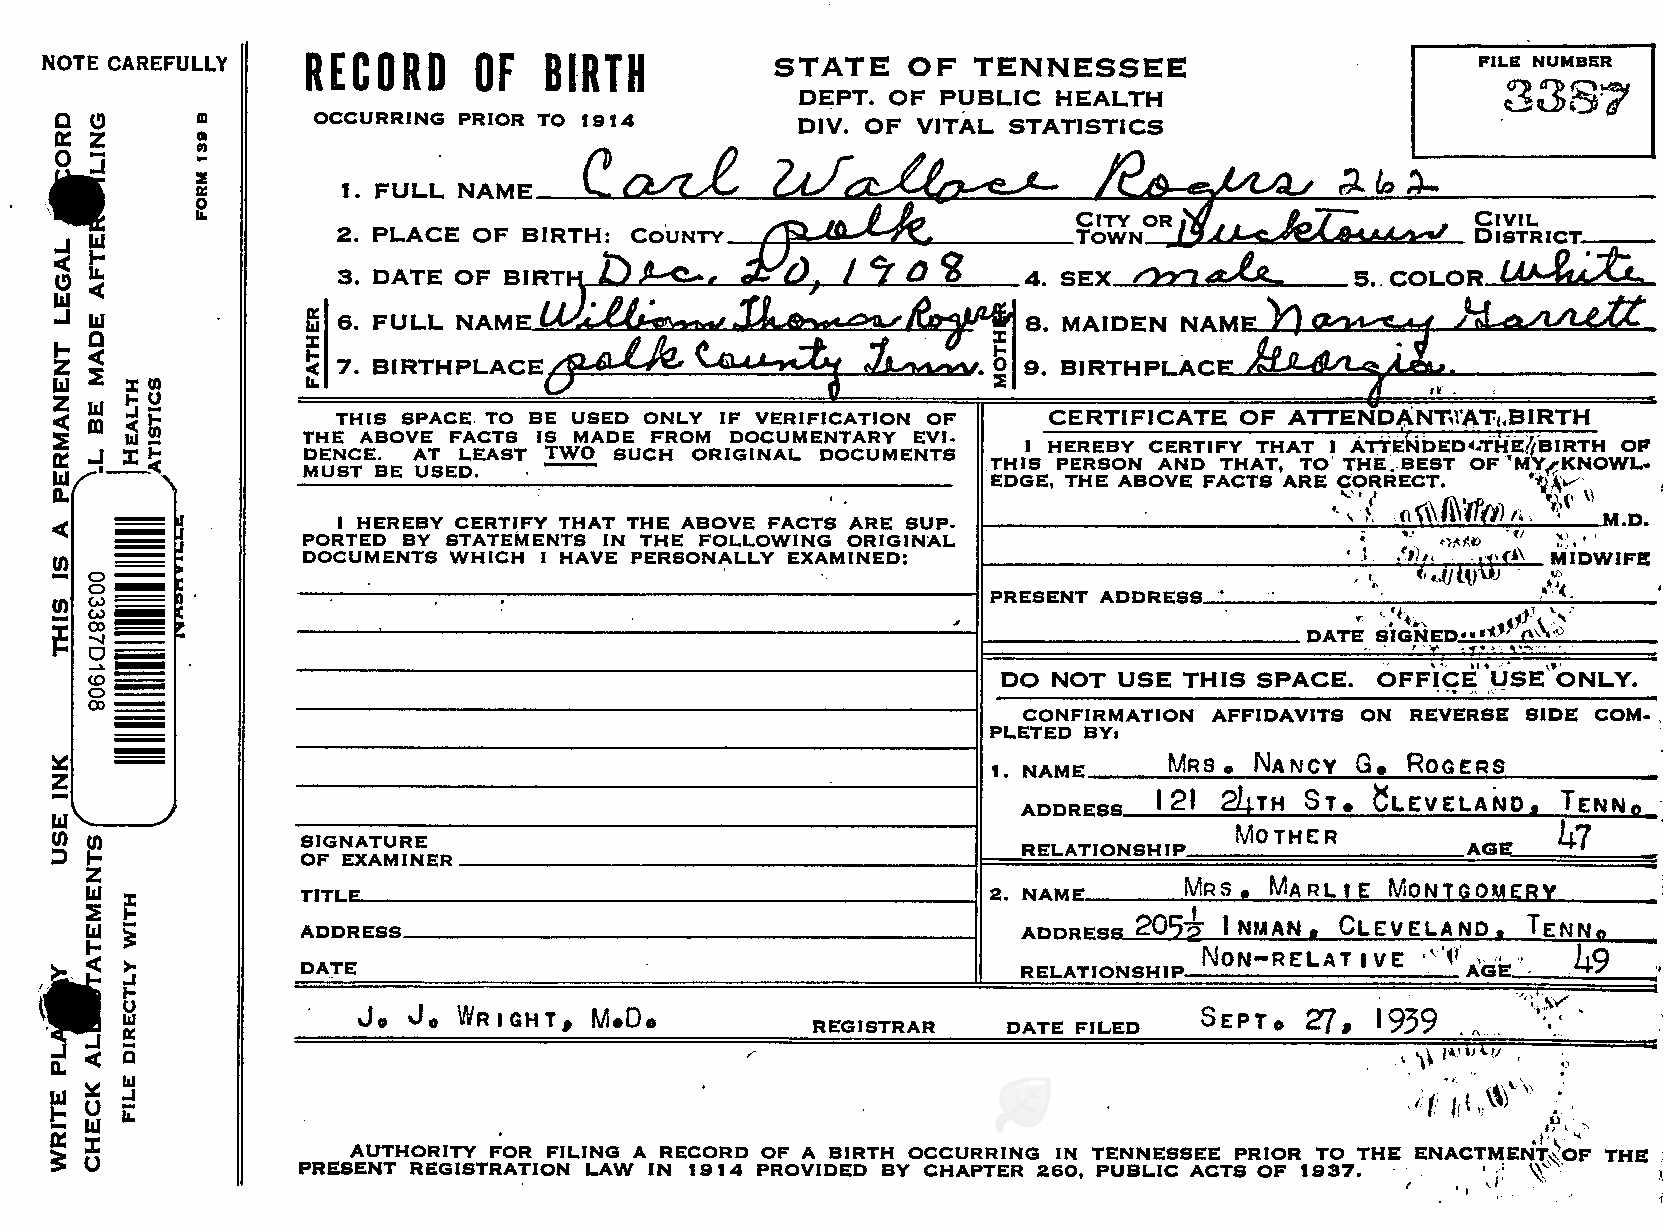 NOTE CAREFULLY
RECORD OF BIRTH
OCCURRING PRIOR TO 1914
STATE OF TENNESSEE
DEPT. OF PUBLIC HEALTH
DIV. OF VITAL STATISTICS
FILE NUMBER
3387
FORM 139 B
1. FULL NAME Carl Wallace Rogers 262
2. PLACE OF BIRTH: COUNTY polk CITY OR TOWN Ducktown CIVIL DISTRICT
3. DATE OF BIRTH Dec., 20, 1908 4. SEX male 5. COLOR White
FATHER
6. FULL NAME William Thomas Rogers
7. BIRTHPLACE polk County Tenn.
MOTHER
8. MAIDEN NAME Nancy Garrett
9. BIRTHPLACE Georgia.
THIS SPACE TO BE USED ONLY IF VERIFICATION OF
THE ABOVE FACTS IS MADE FROM DOCUMENTARY EVI-
DENCE. AT LEAST TWO SUCH ORIGINAL DOCUMENTS
MUST BE USED.
I HEREBY CERTIFY THAT THE ABOVE FACTS ARE SUP-
PORTED BY STATEMENTS IN THE FOLLOWING ORIGINAL
DOCUMENTS WHICH I HAVE PERSONALLY EXAMINED:
SIGNATURE
OF EXAMINER
TITLE
ADDRESS
DATE
CERTIFICATE OF ATTENDANT AT BIRTH
I HEREBY CERTIFY THAT I ATTENDED THE BIRTH OF
THIS PERSON AND THAT, TO THE BEST OF MY KNOWL-
EDGE, THE ABOVE FACTS ARE CORRECT.
M.D.
MIDWIFE
PRESENT ADDRESS
DATE SIGNED
DO NOT USE THIS SPACE. OFFICE USE ONLY.
CONFIRMATION AFFIDAVITS ON REVERSE SIDE COM-
PLETED BY:
1. NAME MRS. NANCY G. ROGERS
ADDRESS 121 24TH ST. CLEVELAND, TENN.
RELATIONSHIP MOTHER AGE 47
2. NAME MRS. MARLIE MONTGOMERY
ADDRESS 205½ INMAN, CLEVELAND, TENN.
RELATIONSHIP NON-RELATIVE AGE 49
J. J. WRIGHT, M.D. REGISTRAR DATE FILED SEPT. 27, 1939
AUTHORITY FOR FILING A RECORD OF A BIRTH OCCURRING IN TENNESSEE PRIOR TO THE ENACTMENT OF THE
PRESENT REGISTRATION LAW IN 1914 PROVIDED BY CHAPTER 260, PUBLIC ACTS OF 1937.
WRITE USE INK THIS IS A PERMANENT LEGAL
CHECK BE MADE
FILE DIRECTLY WITH HEALTH
003387D1908